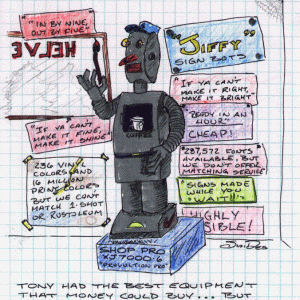 "IN BY NINE,
OUT BY FIVE"
"JIFFY"
SIGN BOT?
"IF YA CAN'T
MAKE IT RIGHT,
MAKE IT BRIGHT"
READY IN AN
HOUR"
CHEAP!
"IF YA CAN'T
MAKE IT FINE,
MAKE IT SHINE"
"287,572 FONTS
AVAILABLE, BUT
WE DON'T OFFER
MATCHING SERVICE"
236 VINYL
COLORS AND
16 MILLION
PRINT COLORS
BUT WE CAN'T
MATCH 1-SHOT
OR RUSTOLEUM
"SIGNS MADE
WHILE YOU
WAIT!!"
HIGHLY
SIBLE!
SHOP PRO
XJ7000-6
"PRODUCTION PRO"
TONY HAD THE BEST EQUIPMENT
THAT MONEY COULD BUY... BUT